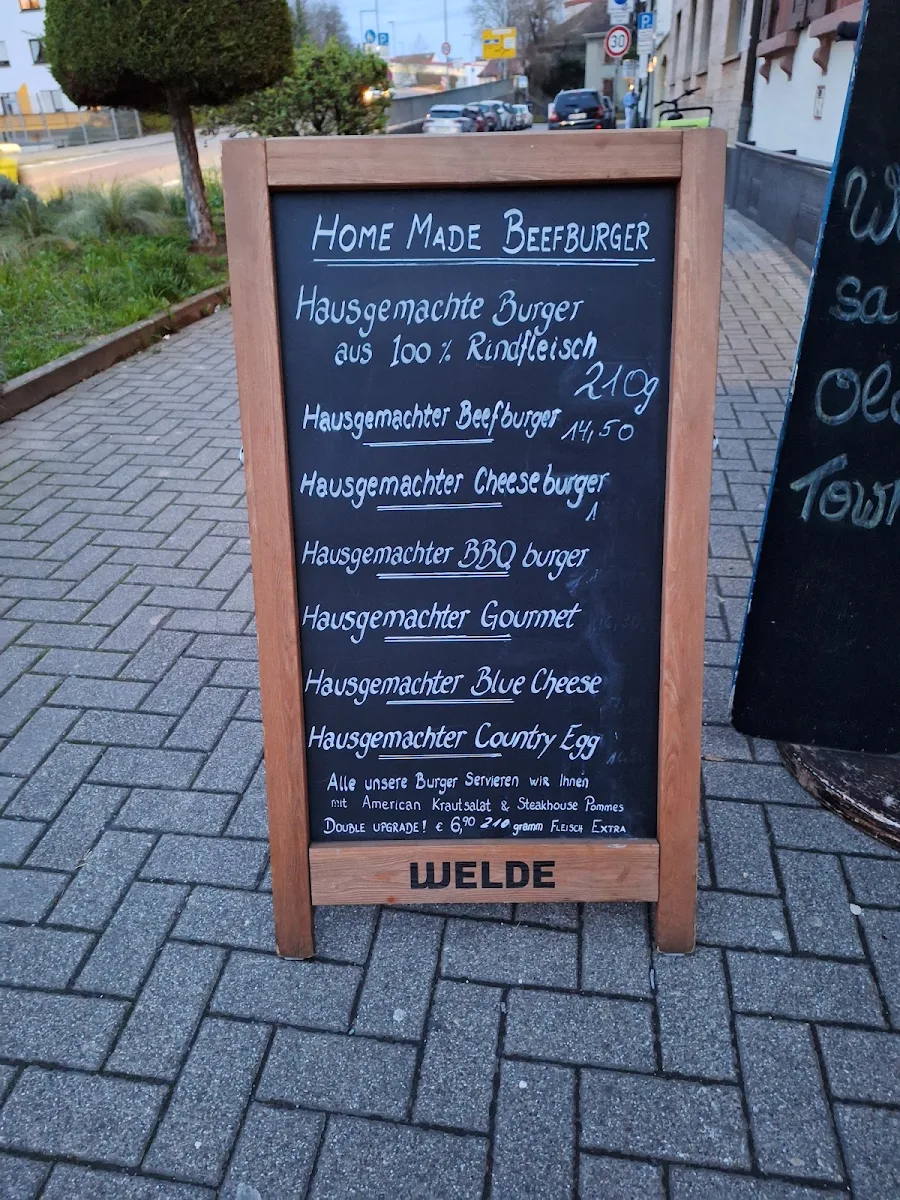 HOME MADE BEEFBURGER
Hausgemachte Burger
aus 100% Rindfleisch
210g
Hausgemachter Beefburger 14,50
Hausgemachter Cheeseburger
1
Hausgemachter BBQ burger
Hausgemachter Gourmet
Hausgemachter Blue Cheese
Hausgemachter Country Egg
Alle unsere Burger Servieren wir Ihnen
mit American Krautsalat & Steakhouse Pommes
DOUBLE UPGRADE! € 6,90 210 gramm FLEISCH EXTRA
WELDE
sa
Old
Town
30
P